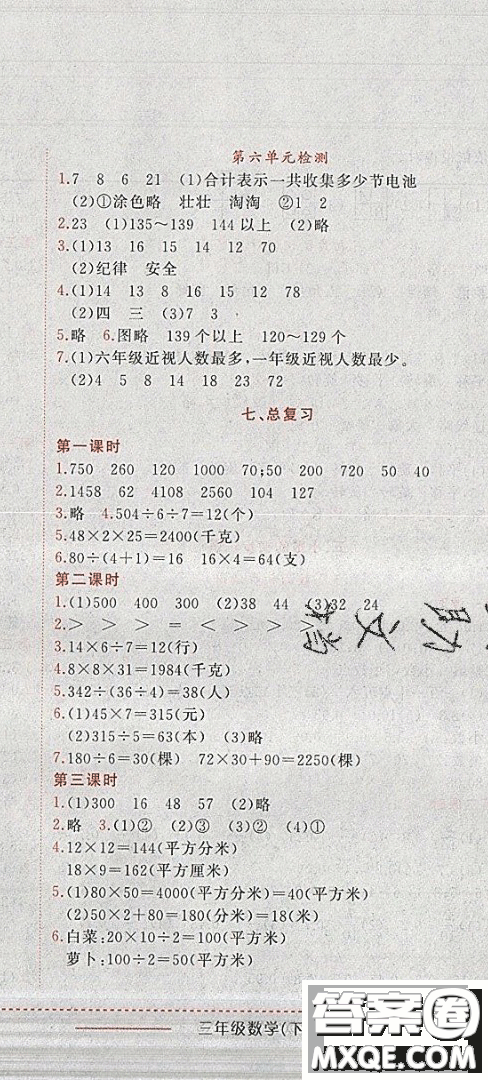 第六单元检测
1.7 8 6 21 (1)合计表示一共收集多少节电池
(2)①涂色略 壮壮 淘淘 ②1 2
2.23 (1)135～139 144以上 (2)略
3.(1)13 16 15 14 12 70
(2)纪律 安全
4.(1)14 13 8 16 15 12 78
(2)四 三 (3)7 3
5.略 6.图略 139个以上 120～129个
7.(1)六年级近视人数最多,一年级近视人数最少。
(2)4 5 8 14 18 23 72
七、总复习
第一课时
1.750 260 120 1000 70;50 200 720 50 40
2.1458 62 4108 2560 104 127
3.略 4.504÷6÷7=12(个)
5.48×2×25=2400(千克)
6.80÷(4+1)=16 16×4=64(支)
第二课时
1.(1)500 400 300 (2)38 44 (3)32 24
2.> > > = < > > >
3.14×6÷7=12(行)
4.8×8×31=1984(千克)
5.342÷(36÷4)=38(人)
6.(1)45×7=315(元)
(2)315÷5=63(本) (3)略
7.180÷6=30(棵) 72×30+90=2250(棵)
第三课时
1.(1)300 16 48 57 (2)略
2.略 3.(1)② (2)③ (3)② (4)①
4.12×12=144(平方分米)
18×9=162(平方厘米)
5.(1)80×50=4000(平方分米)=40(平方米)
(2)50×2+80=180(分米)=18(米)
6.白菜:20×10÷2=100(平方米)
萝卜:100÷2=50(平方米)
三年级数学(下
答案圈
MXQE.COM